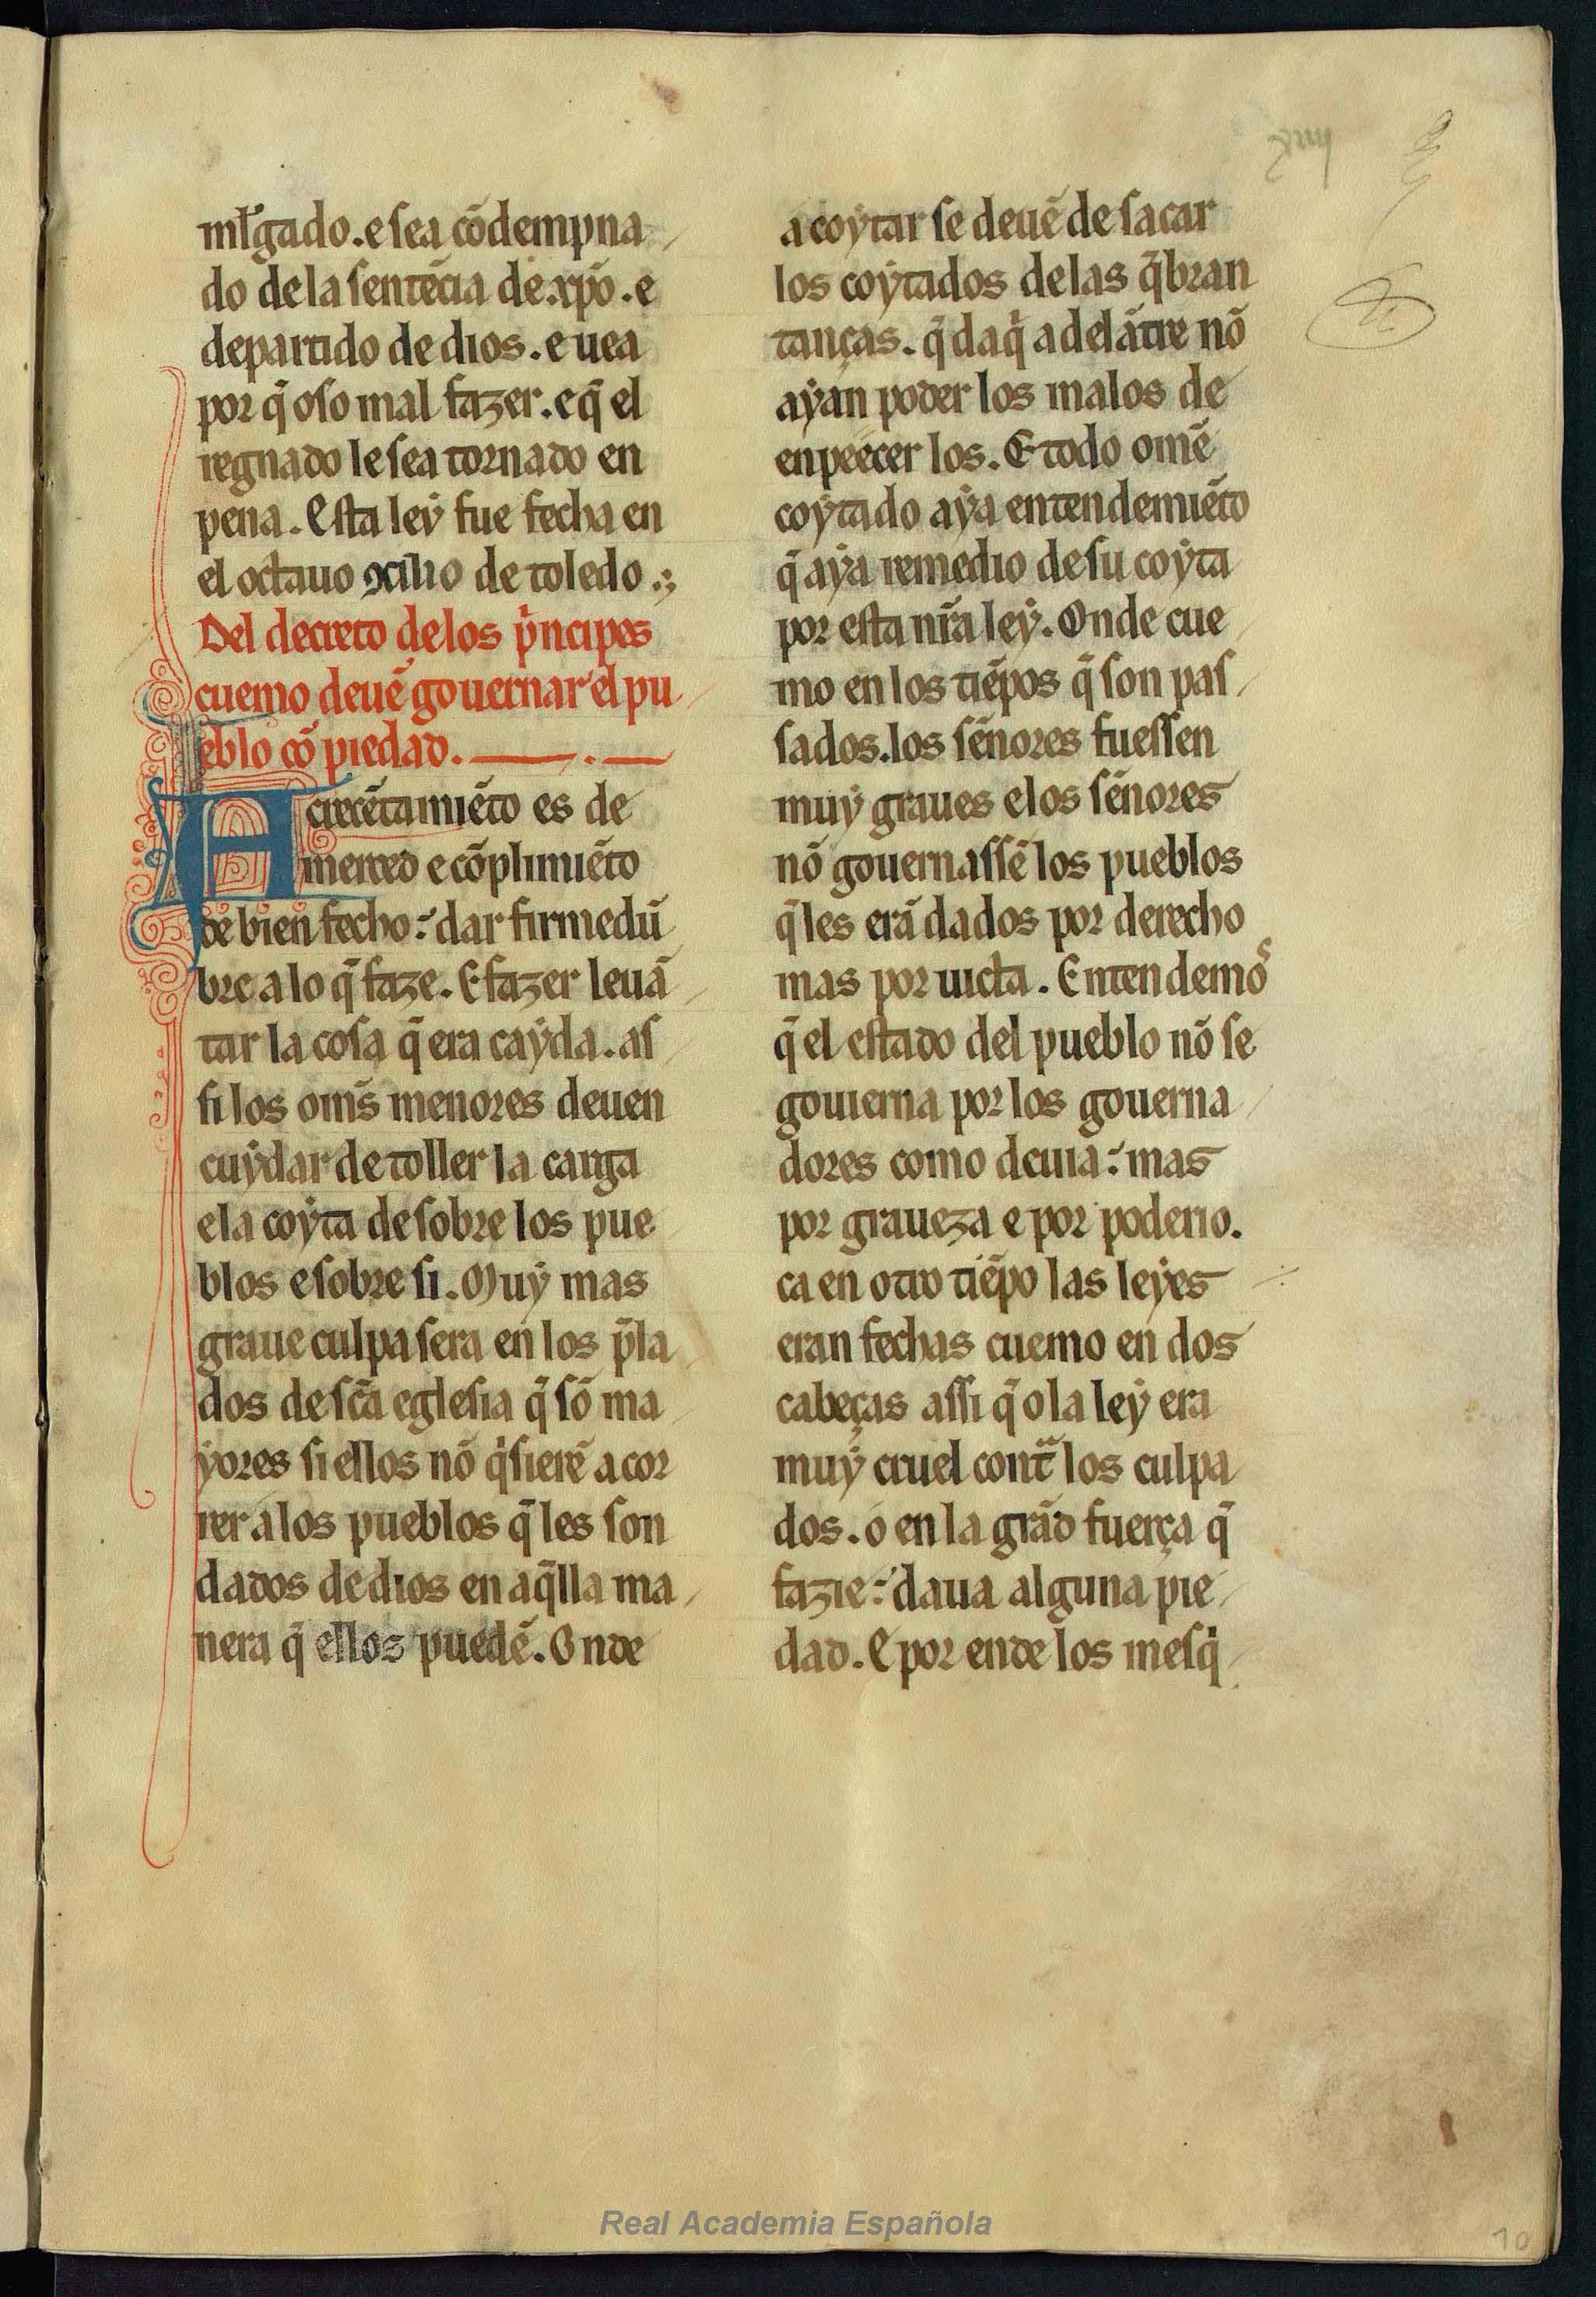 xiiij
mĺgado. e sea cõdempna
do dela sentẽcia de .xp̃o. e
departido de dios. e uea
por q̃ oso mal fazer. e q̃ el
regnado le sea tornado en
pena. Esta leẏ fue fecha en
el octauo ꝯcilio de toledo.
Del decreto delos pͥncipes
cuemo deuẽ gouernar el pu
eblo cõ piedad.
Acrecẽtamiẽto es de
merced e cõplimiẽto
de bien fecho: dar firmedũ
bre a lo q̃ faze. E fazer leuã
tar la cosa q̃ era caẏda. as
si los om̃s menores deuen
cuẏdar de toller la carga
e la coẏta de sobre los pue
blos e sobre si. Muẏ mas
graue culpa sera en los p̃la
dos de sc̃a eglesia q̃ sõ ma
ẏores si ellos nõ qͥsierẽ acor
rer a los pueblos q̃ les son
dados de dios en aq̃lla ma
nera q̃ ellos puedẽ. Onde
a coẏtar se deuẽ de sacar
los coẏtados de las q̃bran
tanças. q̃ daqͥ adelãtre nõ
aẏan poder los malos de
enpeecer los. E todo omẽ
coẏtado aẏa entendemiẽto
q̃ aẏa remedio de su coẏta
por esta nr̃a leẏ. Onde cue
mo en los tiẽpos q̃ son pas
sados. los señores fuessen
muẏ graues e los señores
nõ gouernassẽ los pueblos
q̃ les erã dados por derecho
mas por uicta. Entendemoˢ
q̃ el estado del pueblo nõ se
gouierna por los gouerna
dores como deuia: mas
por graueza e por poderio.
ca en otro tiẽpo las leẏes
eran fechas cuemo en dos
cabeças assi q̃ o la leẏ era
muẏ cruel contᷓ los culpa
dos. o en la grãd fuerça q̃
fazie: daua alguna pie
dad. E por ende los mesqͥ
Real Academia Española
10